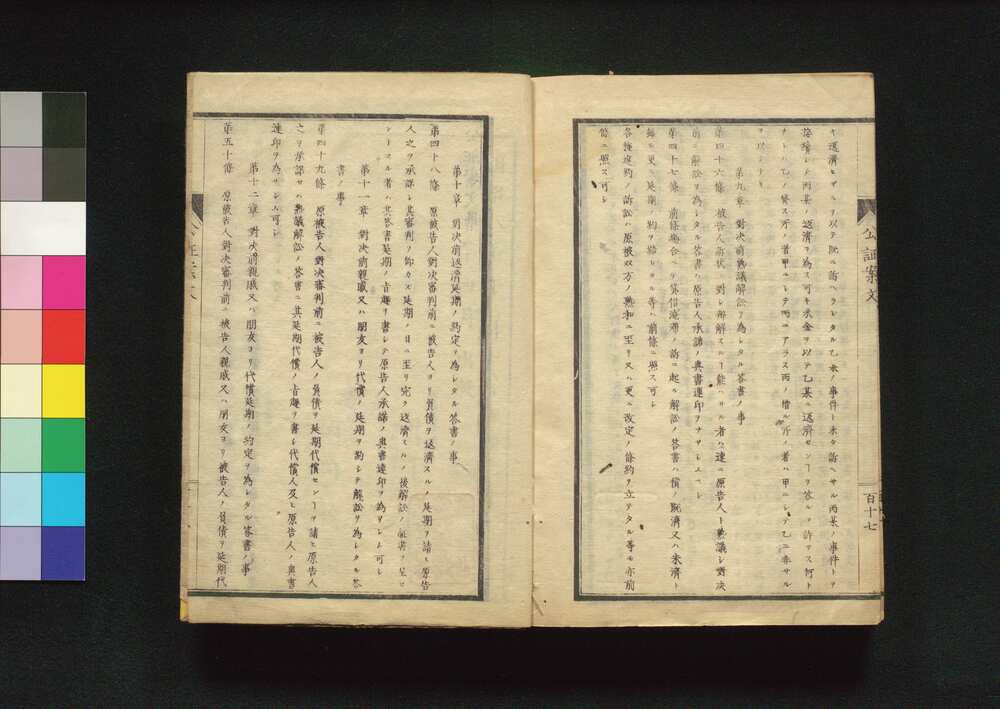 テ返濟セザルヲ以テ既ニ訴ヘラレタル乙某ノ事件ト未タ訴ヘサル丙某ノ事件トヲ
接續シ丙某ノ返濟ヲ為ス可キ米金ヲ以テ乙某ニ返濟センヿヲ答ルヲ許サス何ト
ナレハ乙ノ貸ス所ノ者甲ニシテ丙ニアラス丙ノ借ル所ノ者ハ甲ニシテ乙ニ非サル
ヲ以テナリ
第九章 對決前熟議解訟ヲ為シタル答書ノ事
第四十六條 被告人訴狀ニ對シ辨解スルヿ能ハサル者ハ速ニ原告人ト熟議シ對决
前ニ解訟ヲ為シタル答書ハ原告人承諾ノ奥書連印ヲナサシムベシ
第四十七條 前條塲合ニテ貸借淹滯ノ訴ニ起ル解訟ノ答書ハ償ノ既濟又ハ未濟ト
雖ニ更ニ延期ノ約ヲ結シタル等ハ前條ニ照ス可シ
各種違約ノ訴訟ハ原被双方ノ熟和ニ至リ又ハ更ニ改定ノ條約ヲ立テタル等モ亦前
條ニ照ス可シ
公証案文
百十七
第十章 對决前返濟延期ノ約定ヲ為シタル答書ノ事
第四十八條 原被告人對决審判前ニ被告人ヨリ負債ヲ返濟スルノ延期ヲ請ヒ原告
人之ヲ承諾シ其審判ヲ仰カス延期ノ日ニ至リ完ク返濟セルノ後解訟ノ
シトスル者ハ其答書延期ノ旨趣ヲ書シテ原告人承諾ノ奥書連印ヲ為サシム可シ
第十一章 對决前親戚又ハ朋友ヨリ代償ノ延期ヲ約シテ解訟ヲ為シタル答
書ノ事
第四十九條 原被告人對决審判前ニ被告人ノ負債ヲ延期代償センヿヲ請ヒ原告人
之ヲ承諾セハ熟議解訟ノ答書ニ其延期代償ノ旨趣ヲ書シ代償人及ヒ原告人ノ奥書
連印ヲ為サシム可シ
第十二章 對决前親戚又ハ朋友ヨリ代償延期ノ約定ヲ為シタル答書ノ事
第五十條 原被告人對决審判前ニ被告人親戚又ハ朋友ヨリ被告人ノ負債ヲ延期代